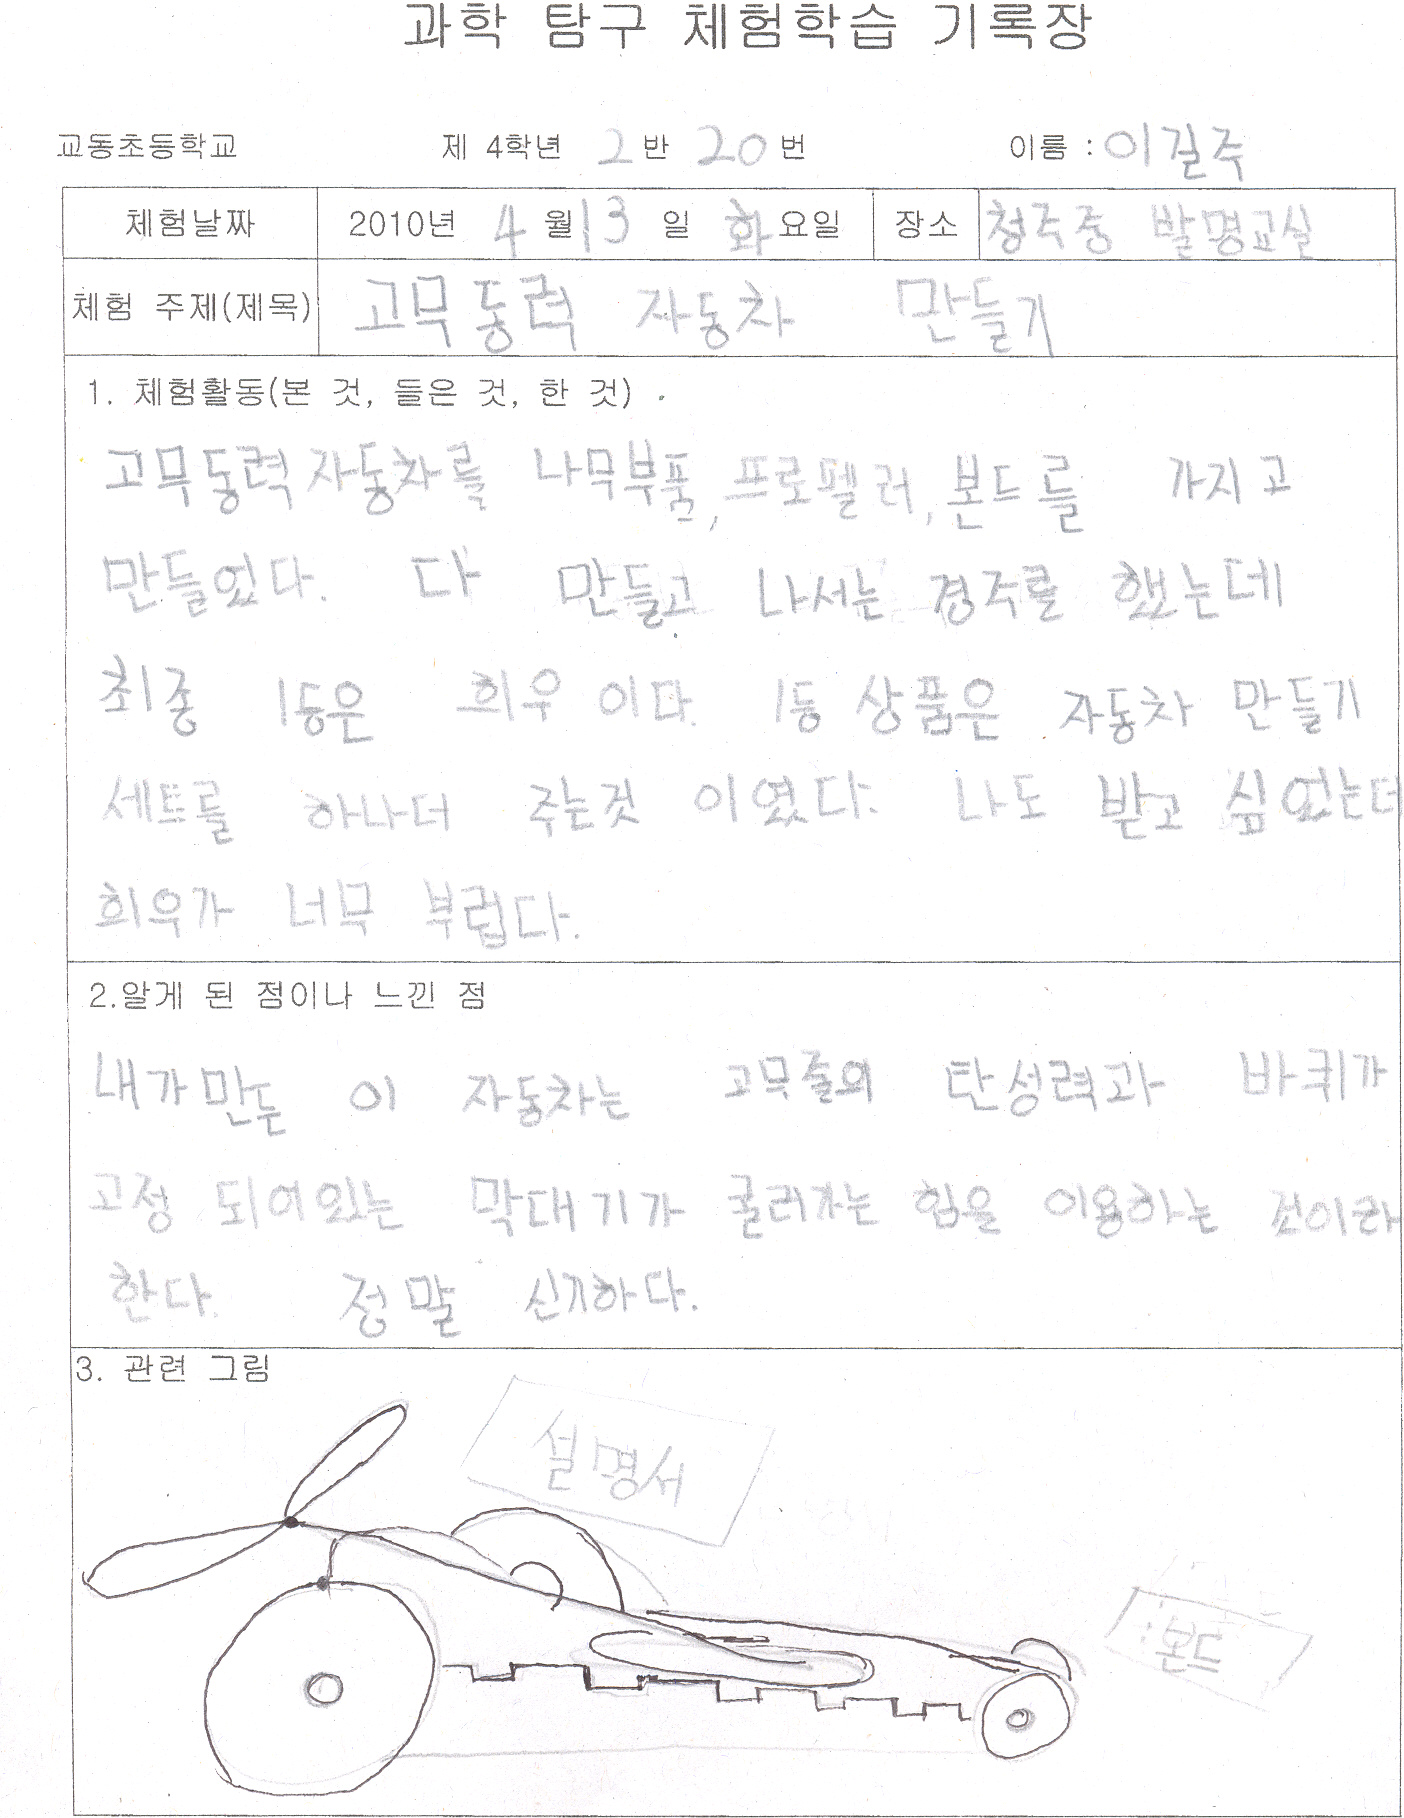 과학 탐구 체험학습 기록장
교동초등학교 제 4학년 2 반 20 번 이름 : 이길주
체험날짜 2010년 4 월 13 일 화 요일 장소 청주중 발명교실
체험 주제(제목) 고무동력 자동차 만들기
1. 체험활동(본 것, 들은 것, 한 것) .
고무동력 자동차를 나무부품, 프로펠러, 본드를 가지고
만들었다. 다 만들고 나서는 경주를 했는데
최종 1등은 희우 이다. 1등 상품은 자동차 만들기
세트를 하나더 주는것 이였다. 나도 받고 싶었는데
희우가 너무 부럽다.
2.알게 된 점이나 느낀 점
내가만든 이 자동차는 고무줄의 탄성력과 바퀴가
고정 되어있는 막대기가 굴러가는 힘을 이용하는 것이라
한다. 정말 신기하다.
3. 관련 그림
설명서
본드